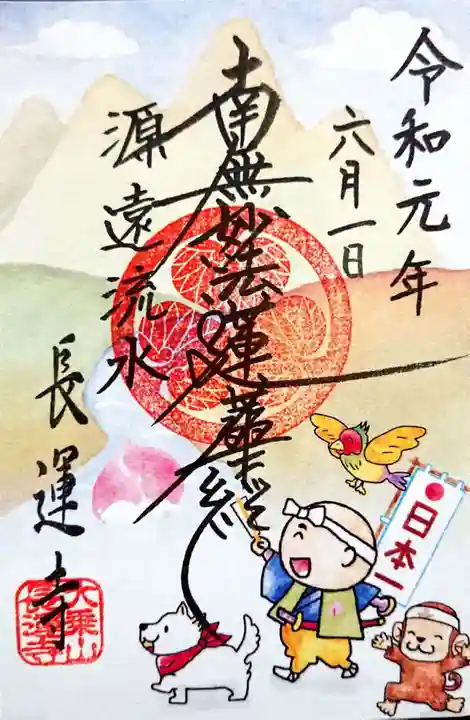 令和元年
六月一日
南無妙法蓮華経
源遠流水
長運寺
大乗山
長運寺
日本一